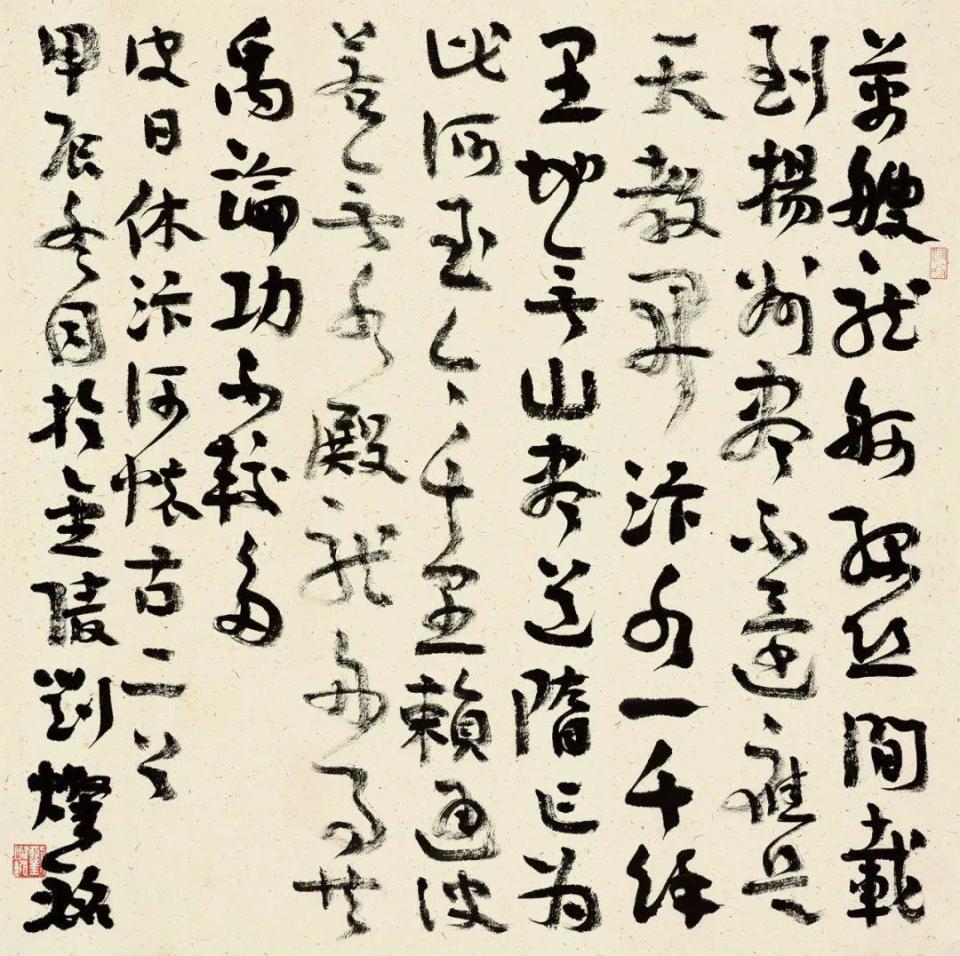 萬艘龍舸綠絲間載
到揚州盡不還應是
天教開汴水一千餘
里地無山盡道隋亡為
此河至今千里賴通波
若無水殿龍舟事共
禹論功不較多
皮日休汴河懷古二首
甲辰冬於金陵劉燦銘